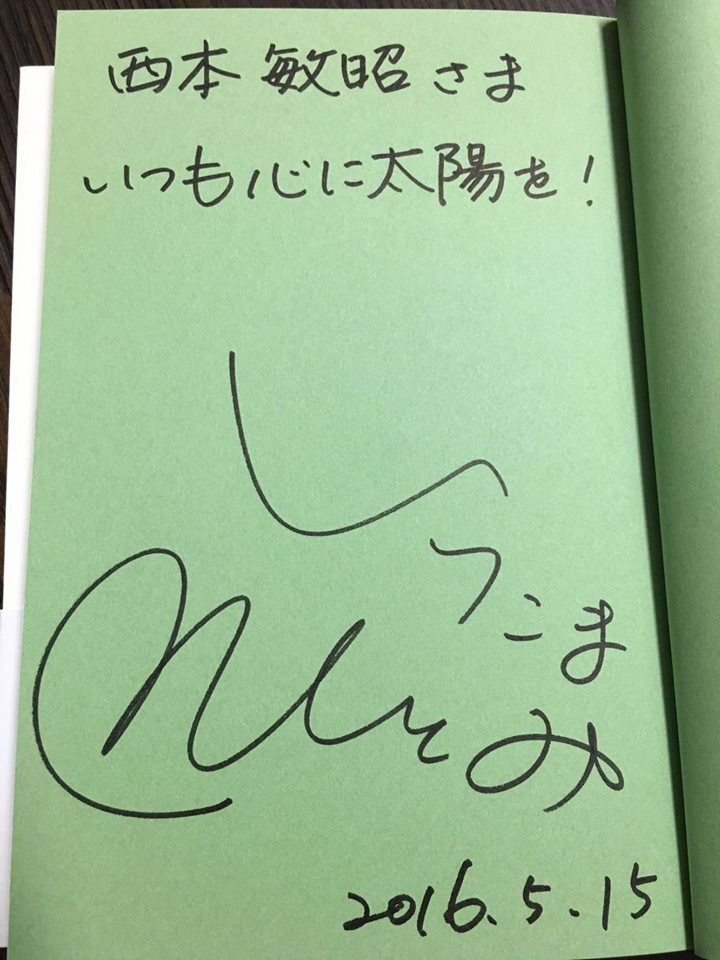 西本 敏昭 さま
いつも心に太陽を！
しつこま
のぞみ
2016.5.15